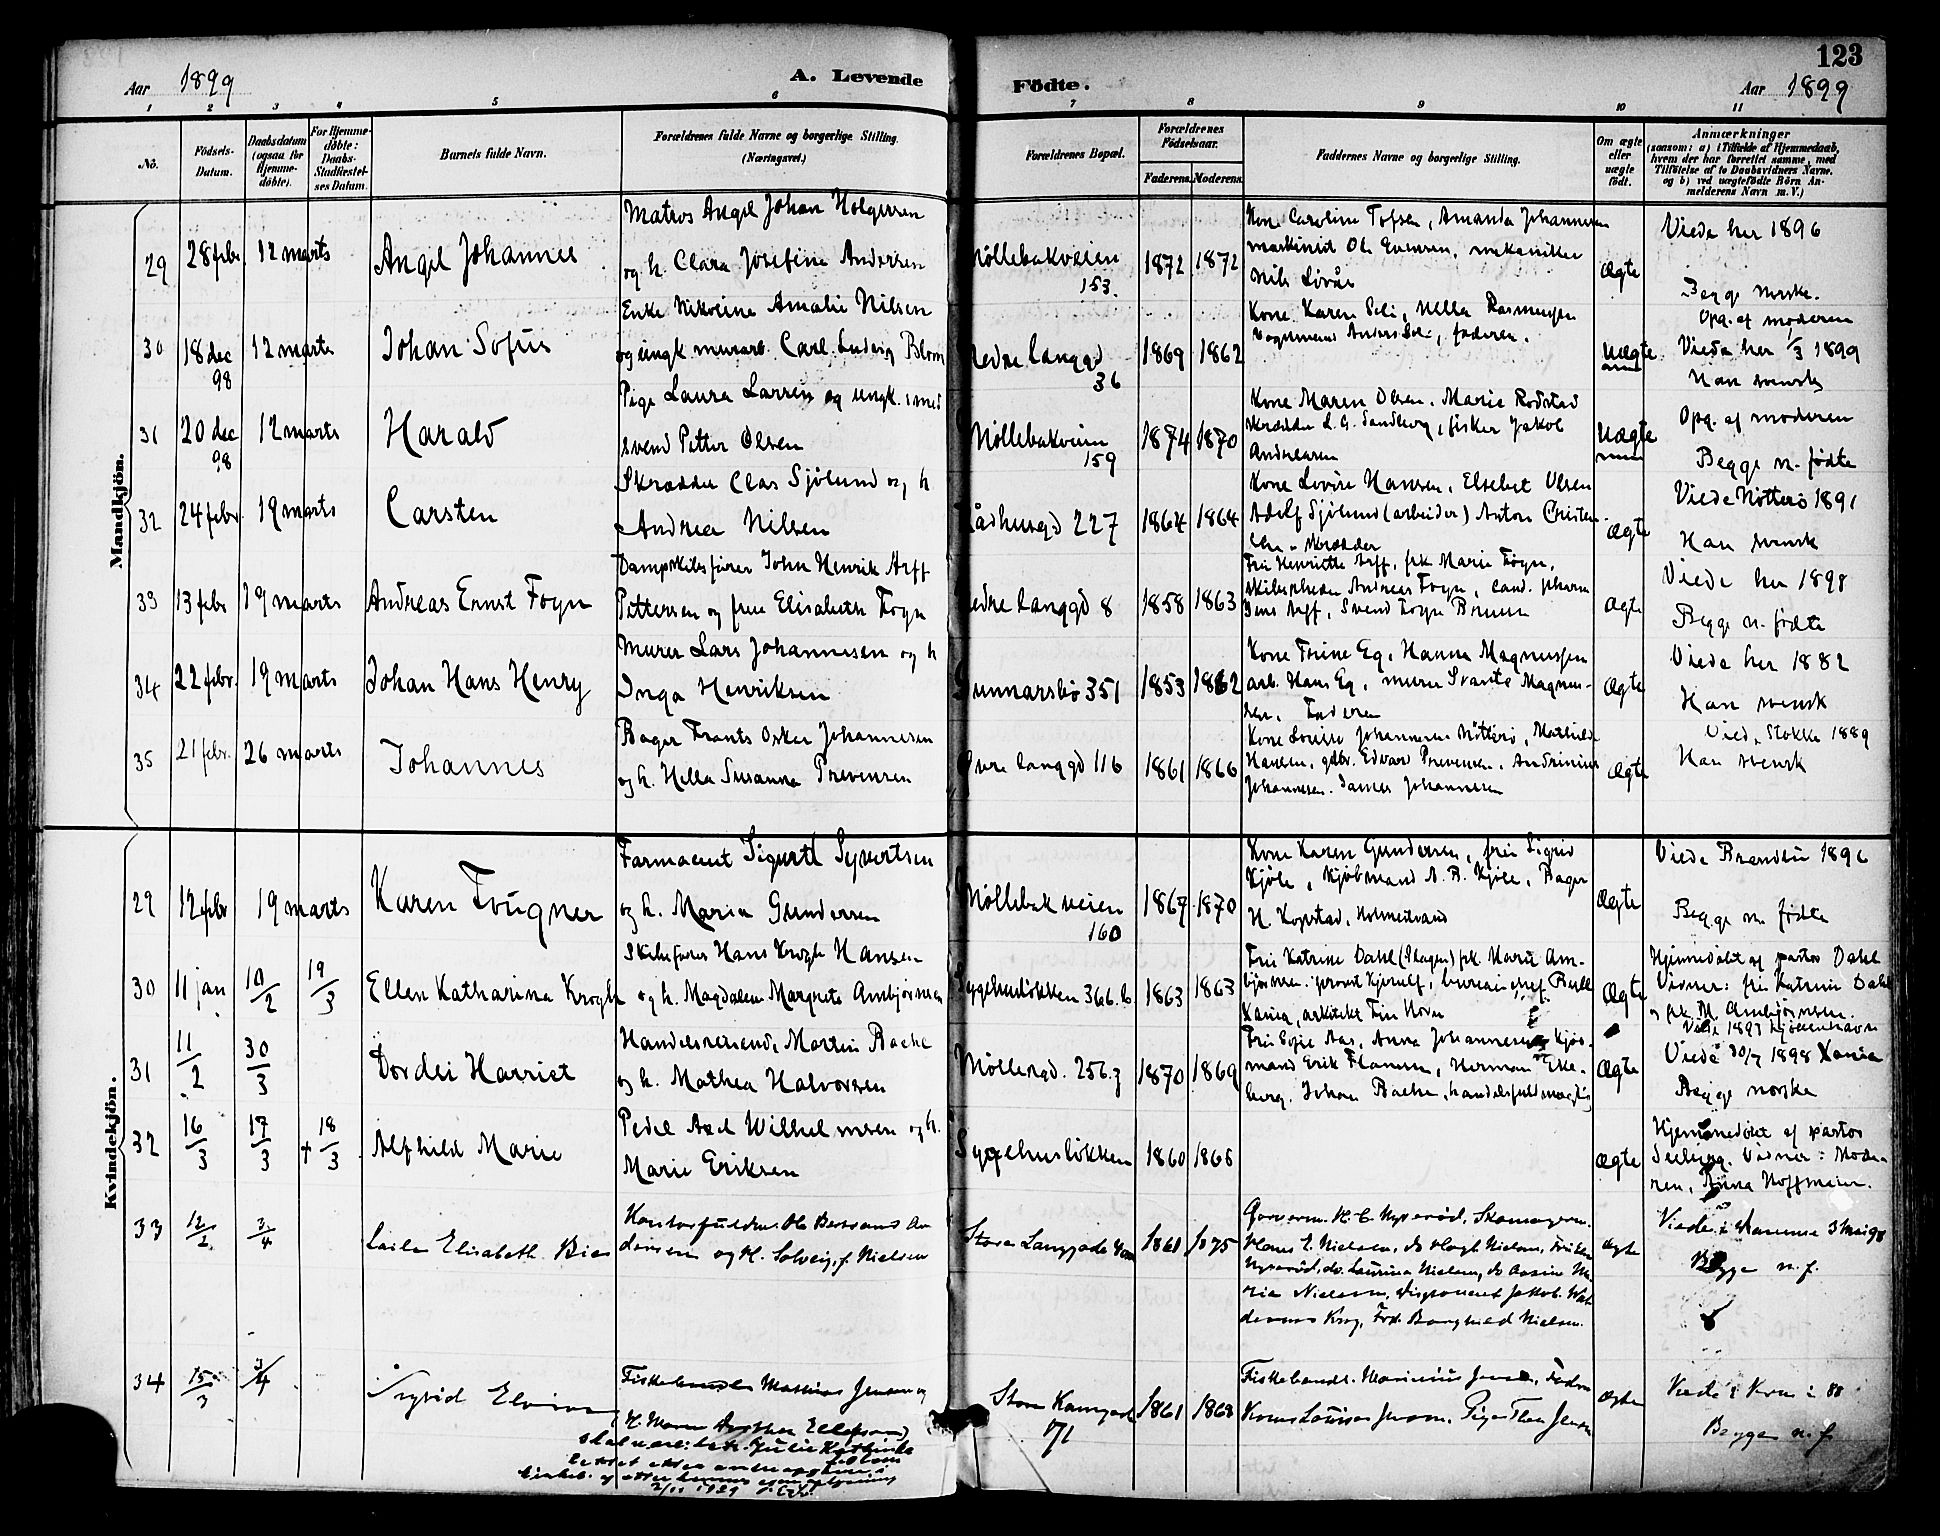 123
Aar 1899
A. Levende
Födte.
Aar 1899
1 2 3 4 5 6 7 8 9 10 11
No.
Födsels-
Datum.
Daabsdatum
(ogsaa for
Hjemme-
döbte).
For Hjemme-
döbte:
Daabs-
Stadfæstel-
ses Datum.
Barnets fulde Navn.
Forældrenes fulde Navne og borgerlige Stilling.
(Næringsvei.)
Forældrenes Bopæl.
Forældrenes
Födselsaar.
Faderens. Moderens.
Faddernes Navne og borgerlige Stilling.
Om ægte
eller
uægte
födt.
Anmærkninger
(saasom: a) i Tilfælde af Hjemmedaab,
hvem der har forrettet samme, med
Tilföielse af to Daabsvidners Navne,
og b) ved uægtefödte Börn An-
melderens Navn m. V.)
Mandkjön.
29 28 febr. 12 marts
Angel Johannes
Matros Angel Johan Holgersen
og h. Clara Josefine Andersen
Møllebakveien
153.
1872 1872
Kone Caroline Tofsen, Amanda Johannesen
maskinist Ol. Evensen, mekaniker
Nils
Ægte
Viede her 1896
Begge norske.
30 18 dec 98 12 marts
Johan Sofus
Enke Amalie Nilsen
og ungk. murarb. Carl Ludvig Blom
nedre langgd
36
1869 1862
Kone Karen Eli, Hella Rasmussen
faderen.
Uægte
Opg. af moderen
Viede her 1/3 1899
Han svensk
31 20 dec 98 12 marts
Harald
Pige Laura Larsen og ungk. smed
svend Petter Olsen
Møllebakveien
159
1874 1870
Kone Maren Olsen, Marie Rødstad
skrædder L. G. Sandberg, fisker Jakob
Andreasen
Uægte
Opg. af moderen
Begge n. fødte
32 24 febr. 19 marts
Carsten
Skrædder Clas Sjølund og h
Andrea Nilsen
Rådhusgd 227
1864 1864
Kone Lovise Hansen, Elsebet Olsen
Adolf Sjølund (arbeider) Anton Christen
sen - skrædder
Ægte
Viede Nøtterø 1891
Han svensk
33 13 febr 19 marts
Andreas Ernst Foyn
Dampskibsfører John Henrik Arff
Pettersen og frue Elisabeth Foyn
nedre langgd 8
1858 1863
Fru Henriette Arff, frk Marie Foyn,
skibsreder Andreas Foyn, cand. pharm
Jens Arff, Svend Foyn Bruun
Ægte
Viede her 1898
Begge n. fødte
34 22 febr. 19 marts
Johan Hans Henry
Murer Lars Johannesen og h
Inga Henriksen
Gunnarsbø 351
1853 1862
Kone Trine Eg, Hanna Magnussen
arb. Hans Eg, murer Svante Magnus-
sen. Faderen
Ægte
Viede her 1882
Han svensk
35 21 febr. 26 marts
Johannes
Bager Frants Oskar Johannesen
og h. Hella Susanna Prevensen
Øvre langgd 116
1861 1866
Kone Lovise Johannesen Nøtterø, Mathilde
Hansen, gdbr. Edvard Prevensen, Andrinius
Johannesen. James Johannesen
Ægte
Vied. Stokke 1889
Han svensk
Kvindekjön.
29 12 febr 19 marts
Karen Fougner
Farmaceut Sigurd Syvertsen
og h. Maria Gundersen
Møllebakveien
160
1867 1870
Kone Karen Gundersen, frk Sigrid
Kjøle, Kjøbmand N. B. Kjøle, Bager
H. Kopstad, Holmestrand
Ægte
Viede Brandbu 1896
Begge n. fødte
30 11 jan 10/2 19/3
Ellen Katharina Krogh
Skibsfører Hans Krogh Hansen
og h. Magdalene Margrete Ambjørnsen
Sygehusløkken 366.b
1863 1863
Fru Katrine Dahl (Skagen) frk Marie Am-
bjørnsen. provst Kjerulf, bureauchef Bull
Xania, arkitekt Fin Horn
Ægte
Hjemmedøbt af pastor Dahl
Vidner: fru Katrine Dahl
og frk. M. Ambjørnsen.
Viede 1897 Kjøbenhavn
31 11/2 30/3
Dordei Harriet
Handelsreisende Martin Bache
og h. Mathea Halvorsen
Møllergd. 256.g
1870 1869
Fru Sofie Aas, Anna Johannesen, Kjøb-
mand Erik Hansen, Herman Eke-
berg, Johan Bache, handelsfuldmægtig
Ægte
Viede 30/7 1898 Xania
Begge norske
32 16/3 17/3 † 18/3
Alfhild Marie
Pedel Axel Wilhelmsen og h.
Marie Eriksen
Sygehusløkken
1860 1865
Ægte
Hjemmedøbt af pastor
Seeberg. Vidner: Mode-
ren, Anna Hoffmann.
33 12/2 3/4
Laila Elisabeth Bie
Kontorfuldm. Ole Bertrand An
dersen og H. Solveig, f. Nielsen
Store Langgade
1861 1875
Garverm. H. C. Nyserød, Skomagerm.
Hans E. Nielsen, do Hagb. Nielsen, Fruken
Nyserød, do. Laurina Nielsen, do Aasine Ma-
rie Nielsen, Disponent Jakob Wal
demar Krog, Frk. Borghild Nielsen.
ægte
Viede i Hammer 3 Mai 98
Begge n. f.
34 15/3 3/4
Sigrid Elvira
Fiskehandler Mathias Jensen og
H. Maren Dorthea Ellefsen
skal være: b. h. Julie Kathinka
rettet efter
1929
Store Kamgade
71
1861 1868
Fiskehandl. Marinius Jensen, Fader
Konen Lauisa Jensen, Pigen Thea Jensen
ægte
Viede i 88
Begge n. f.